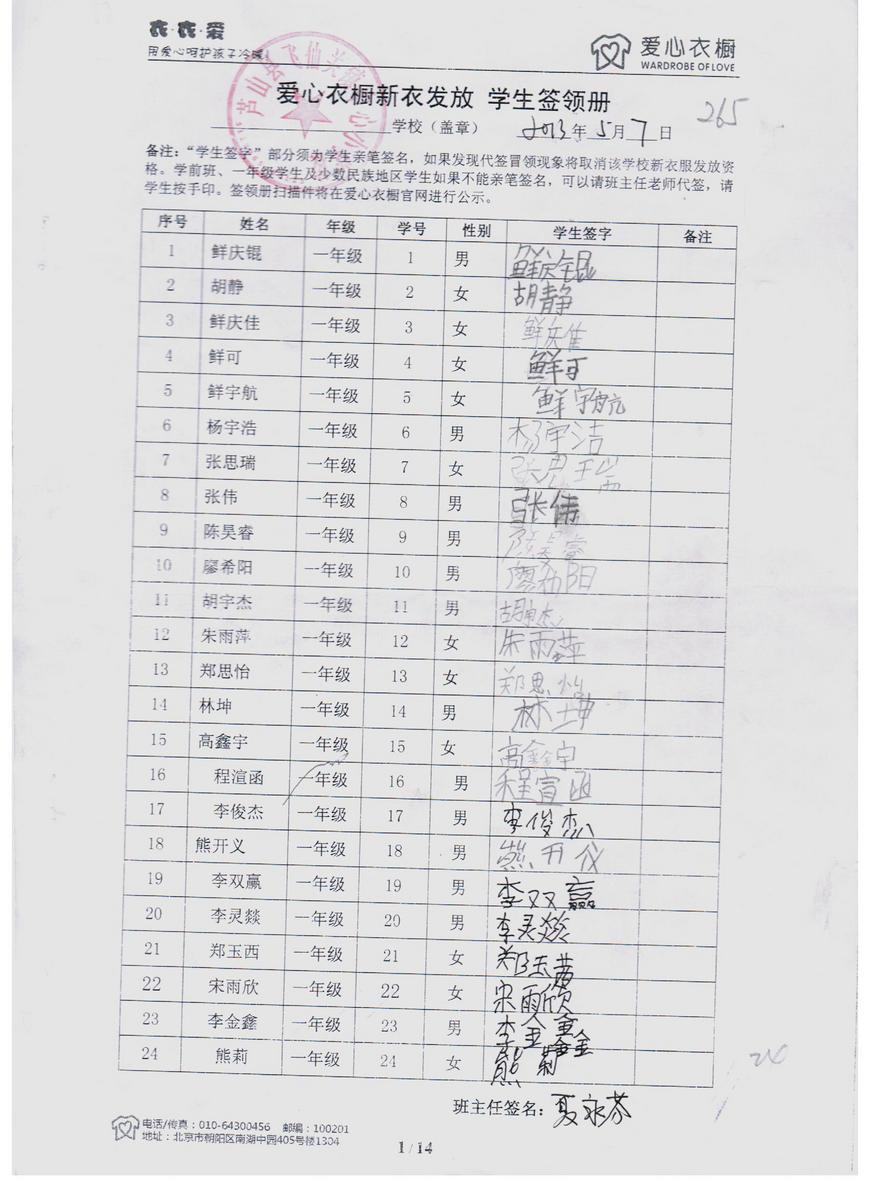 衣·衣·爱
用爱心呵护孩子冷暖!
爱心衣橱
WARDROBE OF LOVE
爱心衣橱新衣发放 学生签领册
265
学校（盖章） 2013年5月7日
备注：“学生签字”部分须为学生亲笔签名，如果发现代签冒领现象将取消该学校新衣服发放资
格。学前班、一年级学生及少数民族地区学生如果不能亲笔签名，可以请班主任老师代签，请
学生按手印。签领册扫描件将在爱心衣橱官网进行公示。
序号 姓名 年级 学号 性别 学生签字 备注
1 鲜庆锟 一年级 1 男 鲜庆锟
2 胡静 一年级 2 女 胡静
3 鲜庆佳 一年级 3 女 鲜庆佳
4 鲜可 一年级 4 女 鲜可
5 鲜宇航 一年级 5 女 鲜宇航
6 杨宇浩 一年级 6 男 杨宇洁
7 张思瑞 一年级 7 女 张思瑞
8 张伟 一年级 8 男 张伟
9 陈昊睿 一年级 9 男 陈昊睿
10 廖希阳 一年级 10 男 廖希阳
11 胡宇杰 一年级 11 男 胡宇杰
12 朱雨萍 一年级 12 女 朱雨萍
13 郑思怡 一年级 13 女 郑思怡
14 林坤 一年级 14 男 林坤
15 高鑫宇 一年级 15 女 高鑫宇
16 程渲函 一年级 16 男 程宣函
17 李俊杰 一年级 17 男 李俊杰
18 熊开义 一年级 18 男 熊开仪
19 李双赢 一年级 19 男 李双赢
20 李灵燚 一年级 20 男 李灵燚
21 郑玉西 一年级 21 女 郑玉茜
22 宋雨欣 一年级 22 女 宋雨欣
23 李金鑫 一年级 23 男 李金鑫
24 熊莉 一年级 24 女 熊莉
班主任签名：夏永芬
电话/传真：010-64300456 邮编：100201
地址：北京市朝阳区南湖中园405号楼1304
1/14